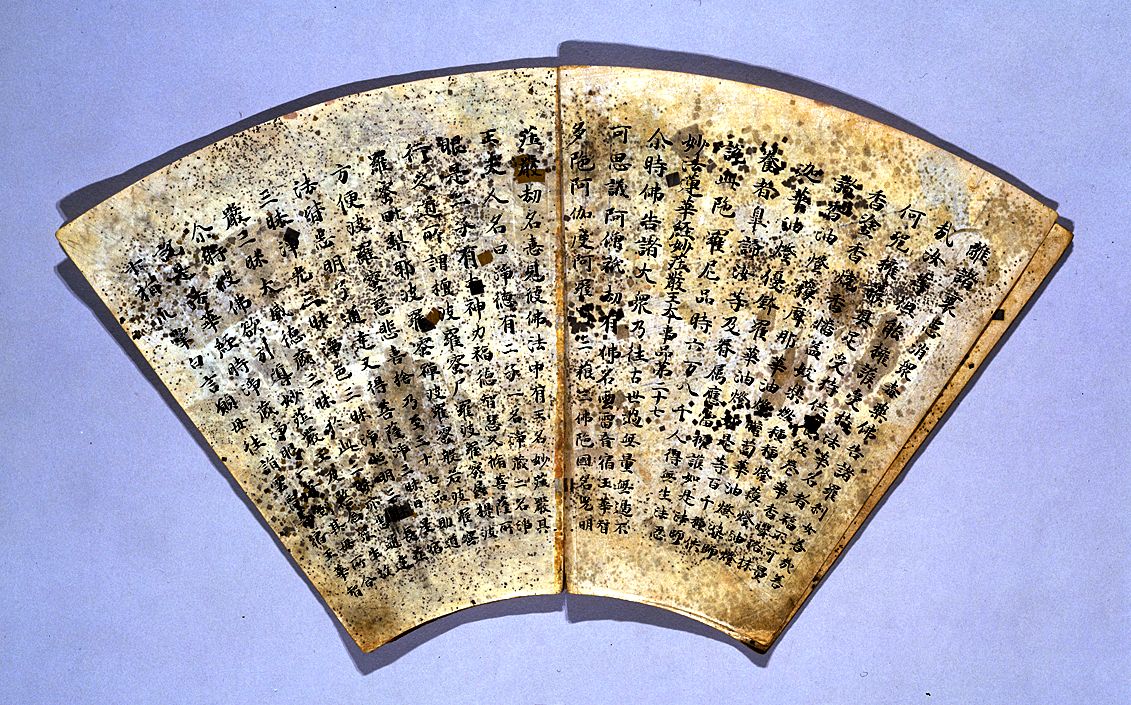 離諸衰患消衆毒藥佛告諸羅刹女善哉善
哉汝等但能擁護受持法華名者福不可量
何況擁護具足受持供養經卷華香瓔珞末
香塗香燒香幡蓋伎樂燃種種燈蘇燈油燈
諸香油燈蘇摩那華油燈瞻蔔華油燈婆師
迦華油燈優鉢羅華油燈如是等百千種供
養者皐諦汝等及眷屬應當擁護如是法師
說此陀羅尼品時六万八千人得無生法忍
妙法蓮華經妙莊嚴王本事品第二十七
尒時佛告諸大衆乃往古世過無量無邊不
可思議阿僧祇劫有佛名雲雷音宿王華智
多陀阿伽度阿羅訶三藐三佛陀國名光明
莊嚴劫名憙見彼佛法中有王名妙莊嚴其
王夫人名曰淨德有二子一名淨藏二名淨
眼是二子有大神力福德智慧久脩菩薩所
行之道所謂檀波羅蜜尸羅波羅蜜羼提波
羅蜜毗梨耶波羅蜜禪波羅蜜般若波羅蜜
方便波羅蜜慈悲喜捨乃至三十七品助道
法皆悉明了通達又得菩薩淨三昧日星宿
三昧淨光三昧淨色三昧淨照明三昧長莊
嚴三昧大威德藏三昧於此三昧亦悉通達
尒時彼佛欲引導妙莊嚴王及愍念衆生故
說是法華經時淨藏淨眼二子到其母所合
十指爪掌白言願母往詣雲雷音宿王華智